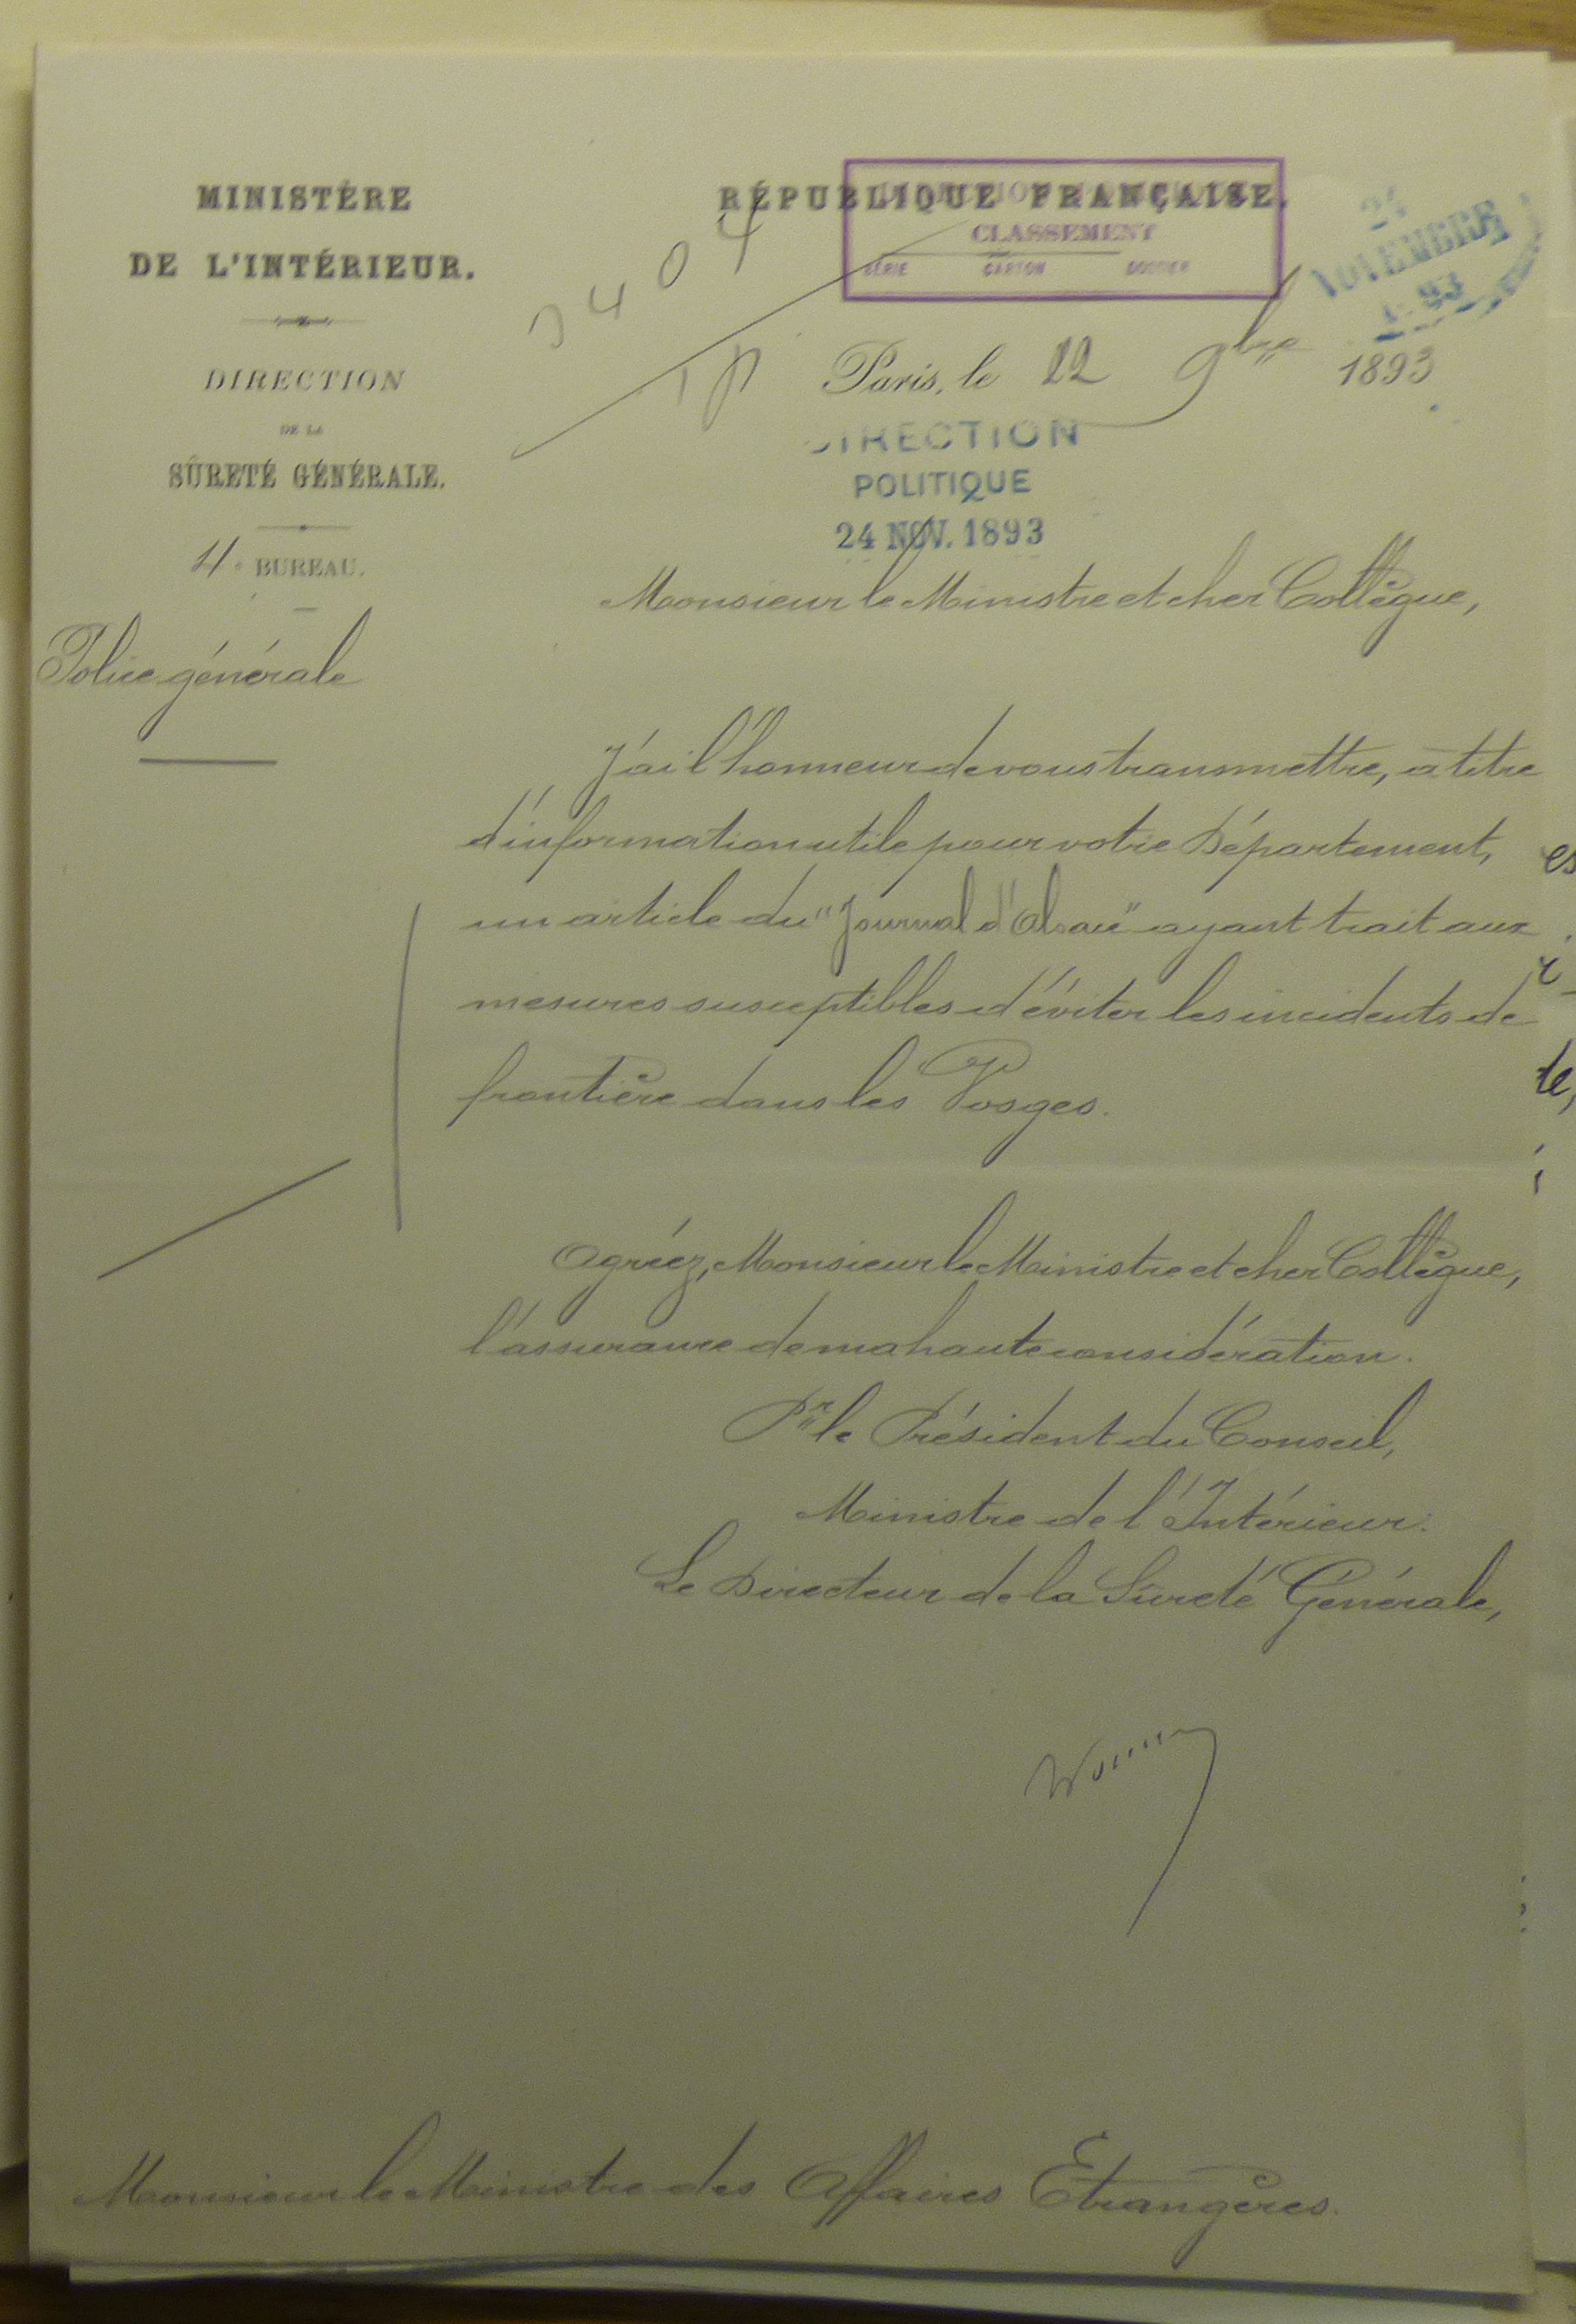 MINISTÈRE
DE L'INTÉRIEUR.
DIRECTION
DE LA
SÛRETÉ GÉNÉRALE.
4e BUREAU.
Police générale
RÉPUBLIQUE FRANÇAISE.
CLASSEMENT
SÉRIE CARTON DOSSIER
24
NOVEMBRE
93
Paris, le 22 9bre 1893
DIRECTION
POLITIQUE
24 NOV. 1893
Monsieur le Ministre et cher Collègue,
J'ai l'honneur de vous transmettre, à titre
d'information utile pour votre Département,
un article du "Journal d'Alsace" ayant trait aux
mesures susceptibles d'éviter les incidents de
frontière dans les Vosges.
Agréez, Monsieur le Ministre et cher Collègue,
l'assurance de ma haute considération.
Pr le Président du Conseil,
Ministre de l'Intérieur.
Le Directeur de la Sûreté Générale,
Monsieur le Ministre des Affaires Etrangères.